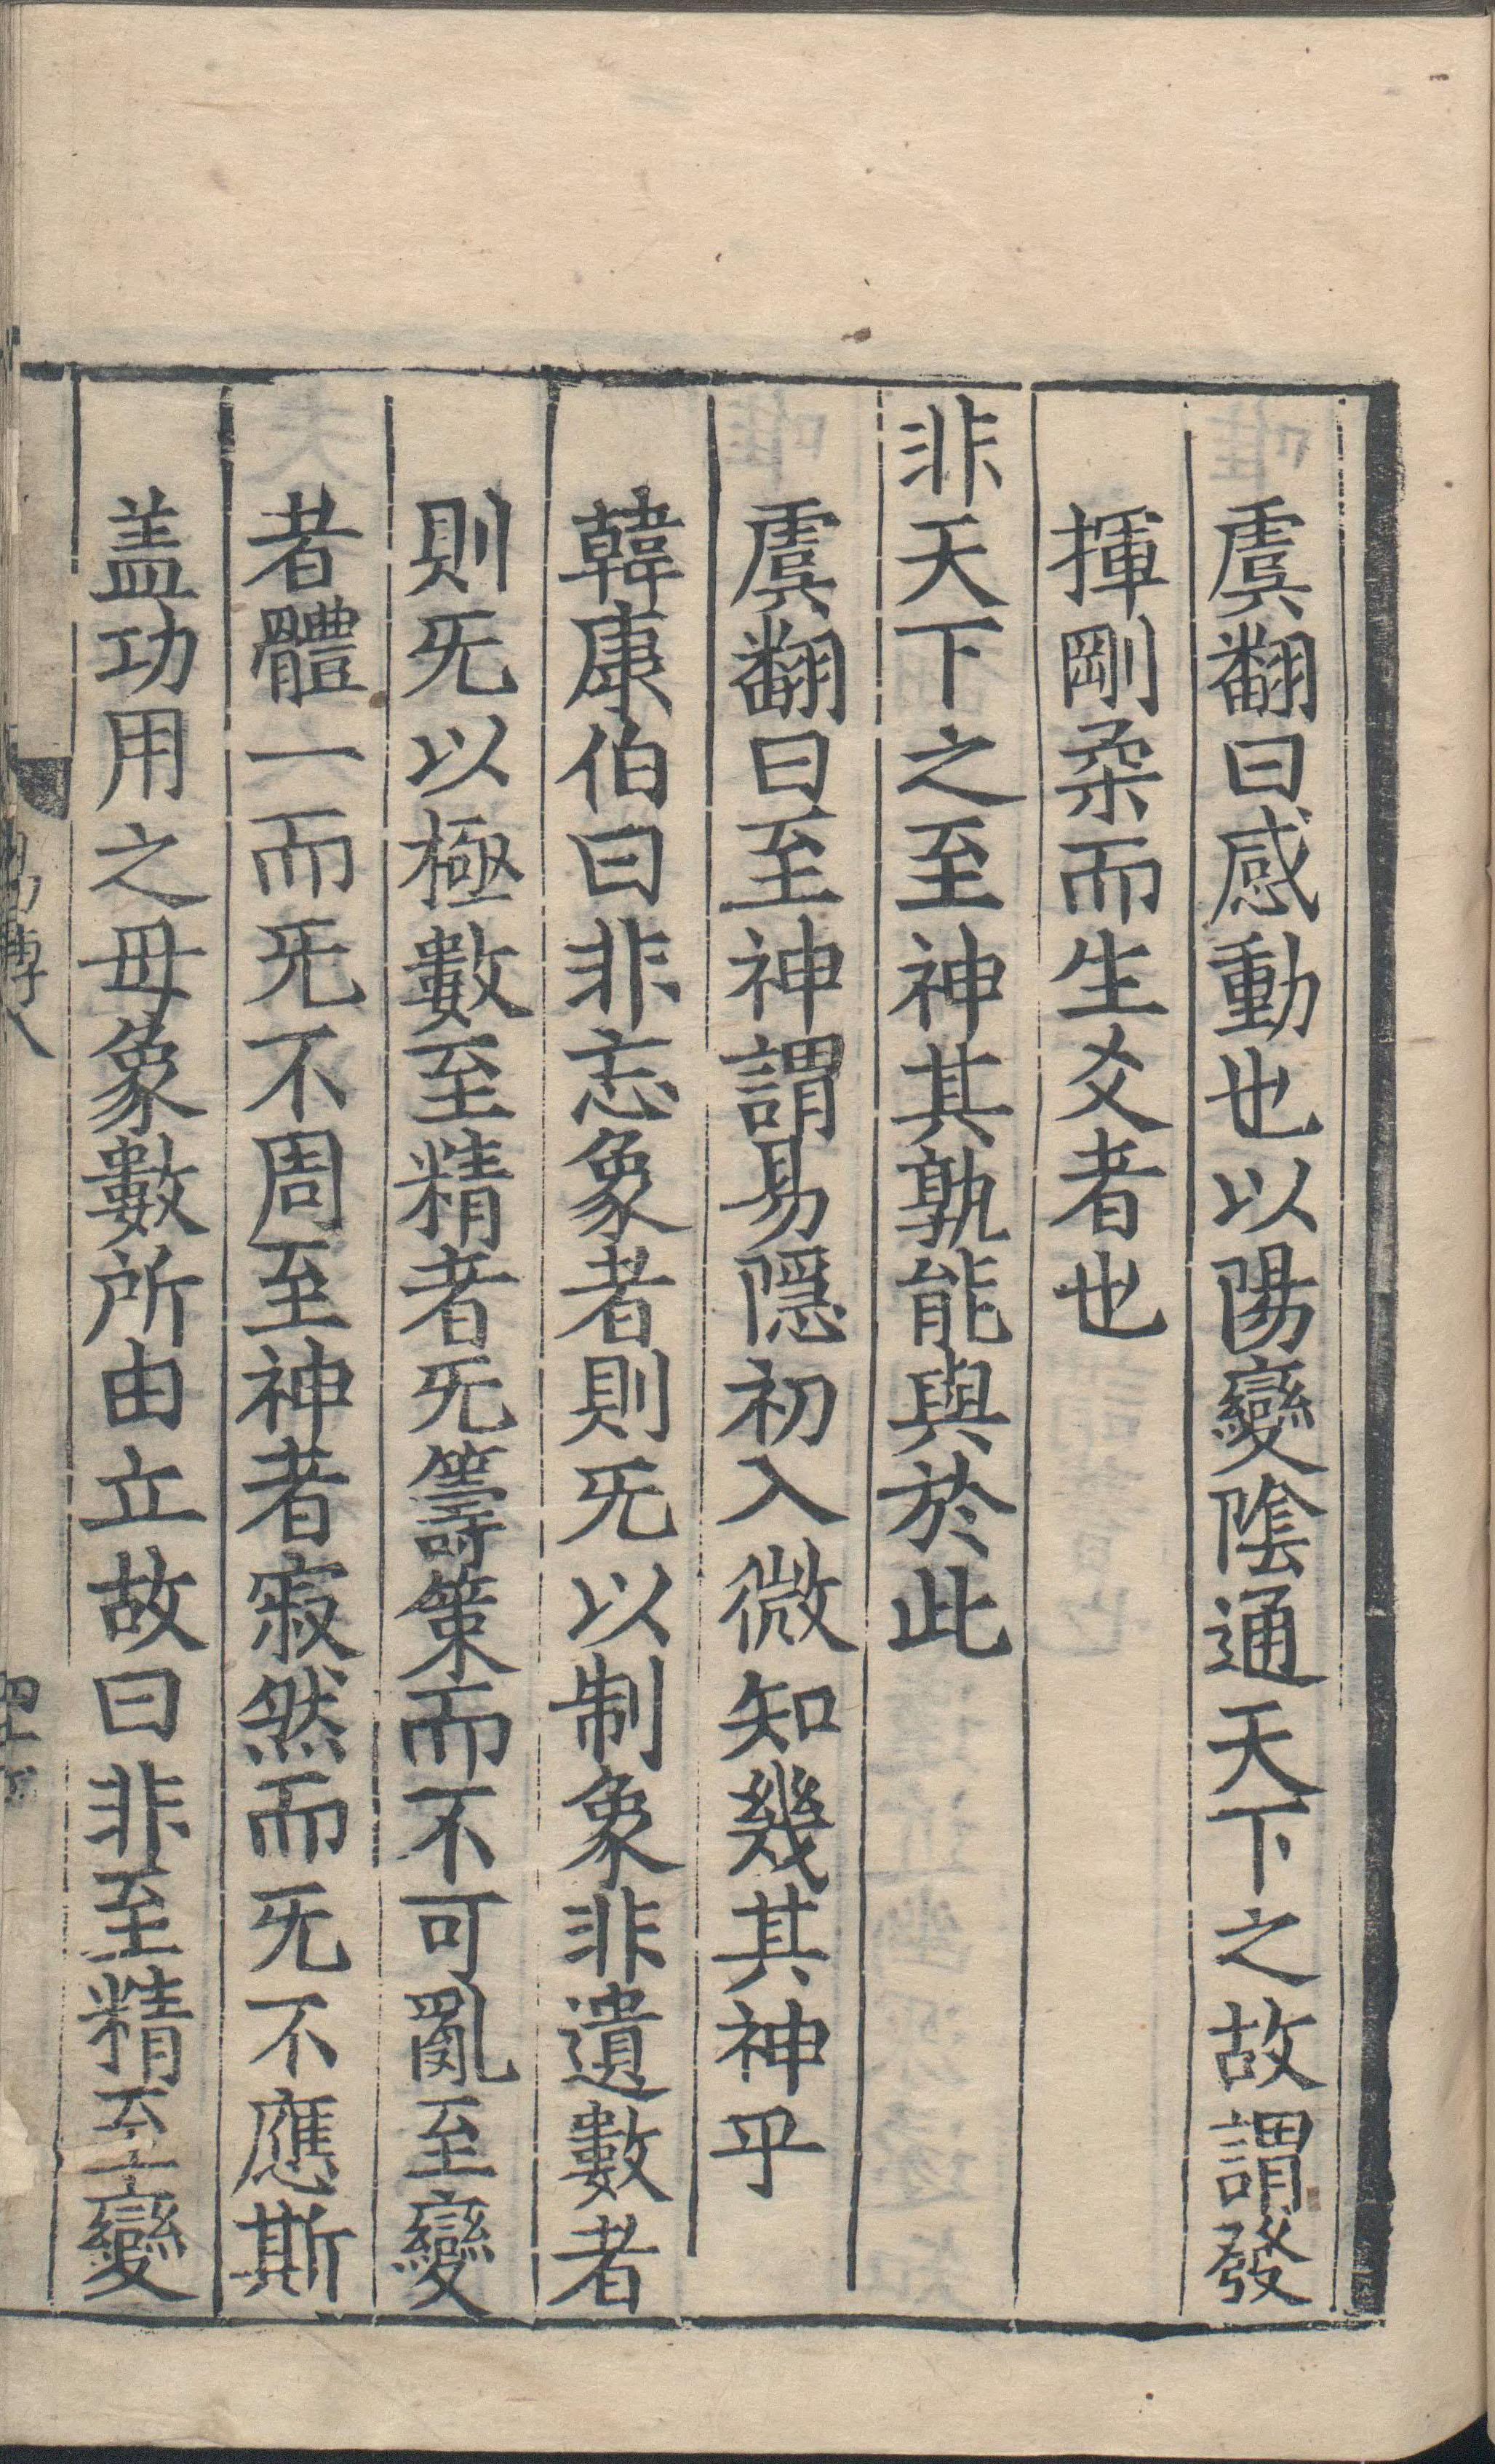 虞翻曰感動也以陽變隂通天下之故謂發
揮剛柔而生爻者也
非天下之至神其孰能與於此
虞翻曰至神謂易隱初入微知幾其神乎
韓康伯曰非忘象者則旡以制象非遺數者
則旡以極數至精者旡籌策而不可亂至變
者體一而旡不周至神者寂然而旡不應斯
盖功用之毋象數所由立故曰非至精至變